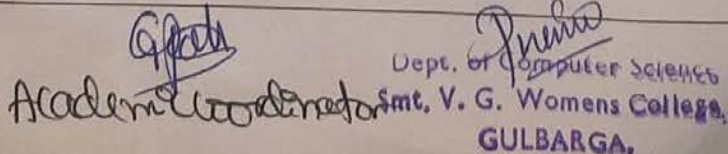 Academic Coordinator
Dept. of Computer Science
Smt. V. G. Womens College,
GULBARGA.